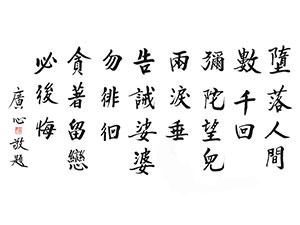 墮落人間
數千回
彌陀望兒
兩淚垂
告誡娑婆
勿徘徊
貪著留戀
必後悔
廣心敬題